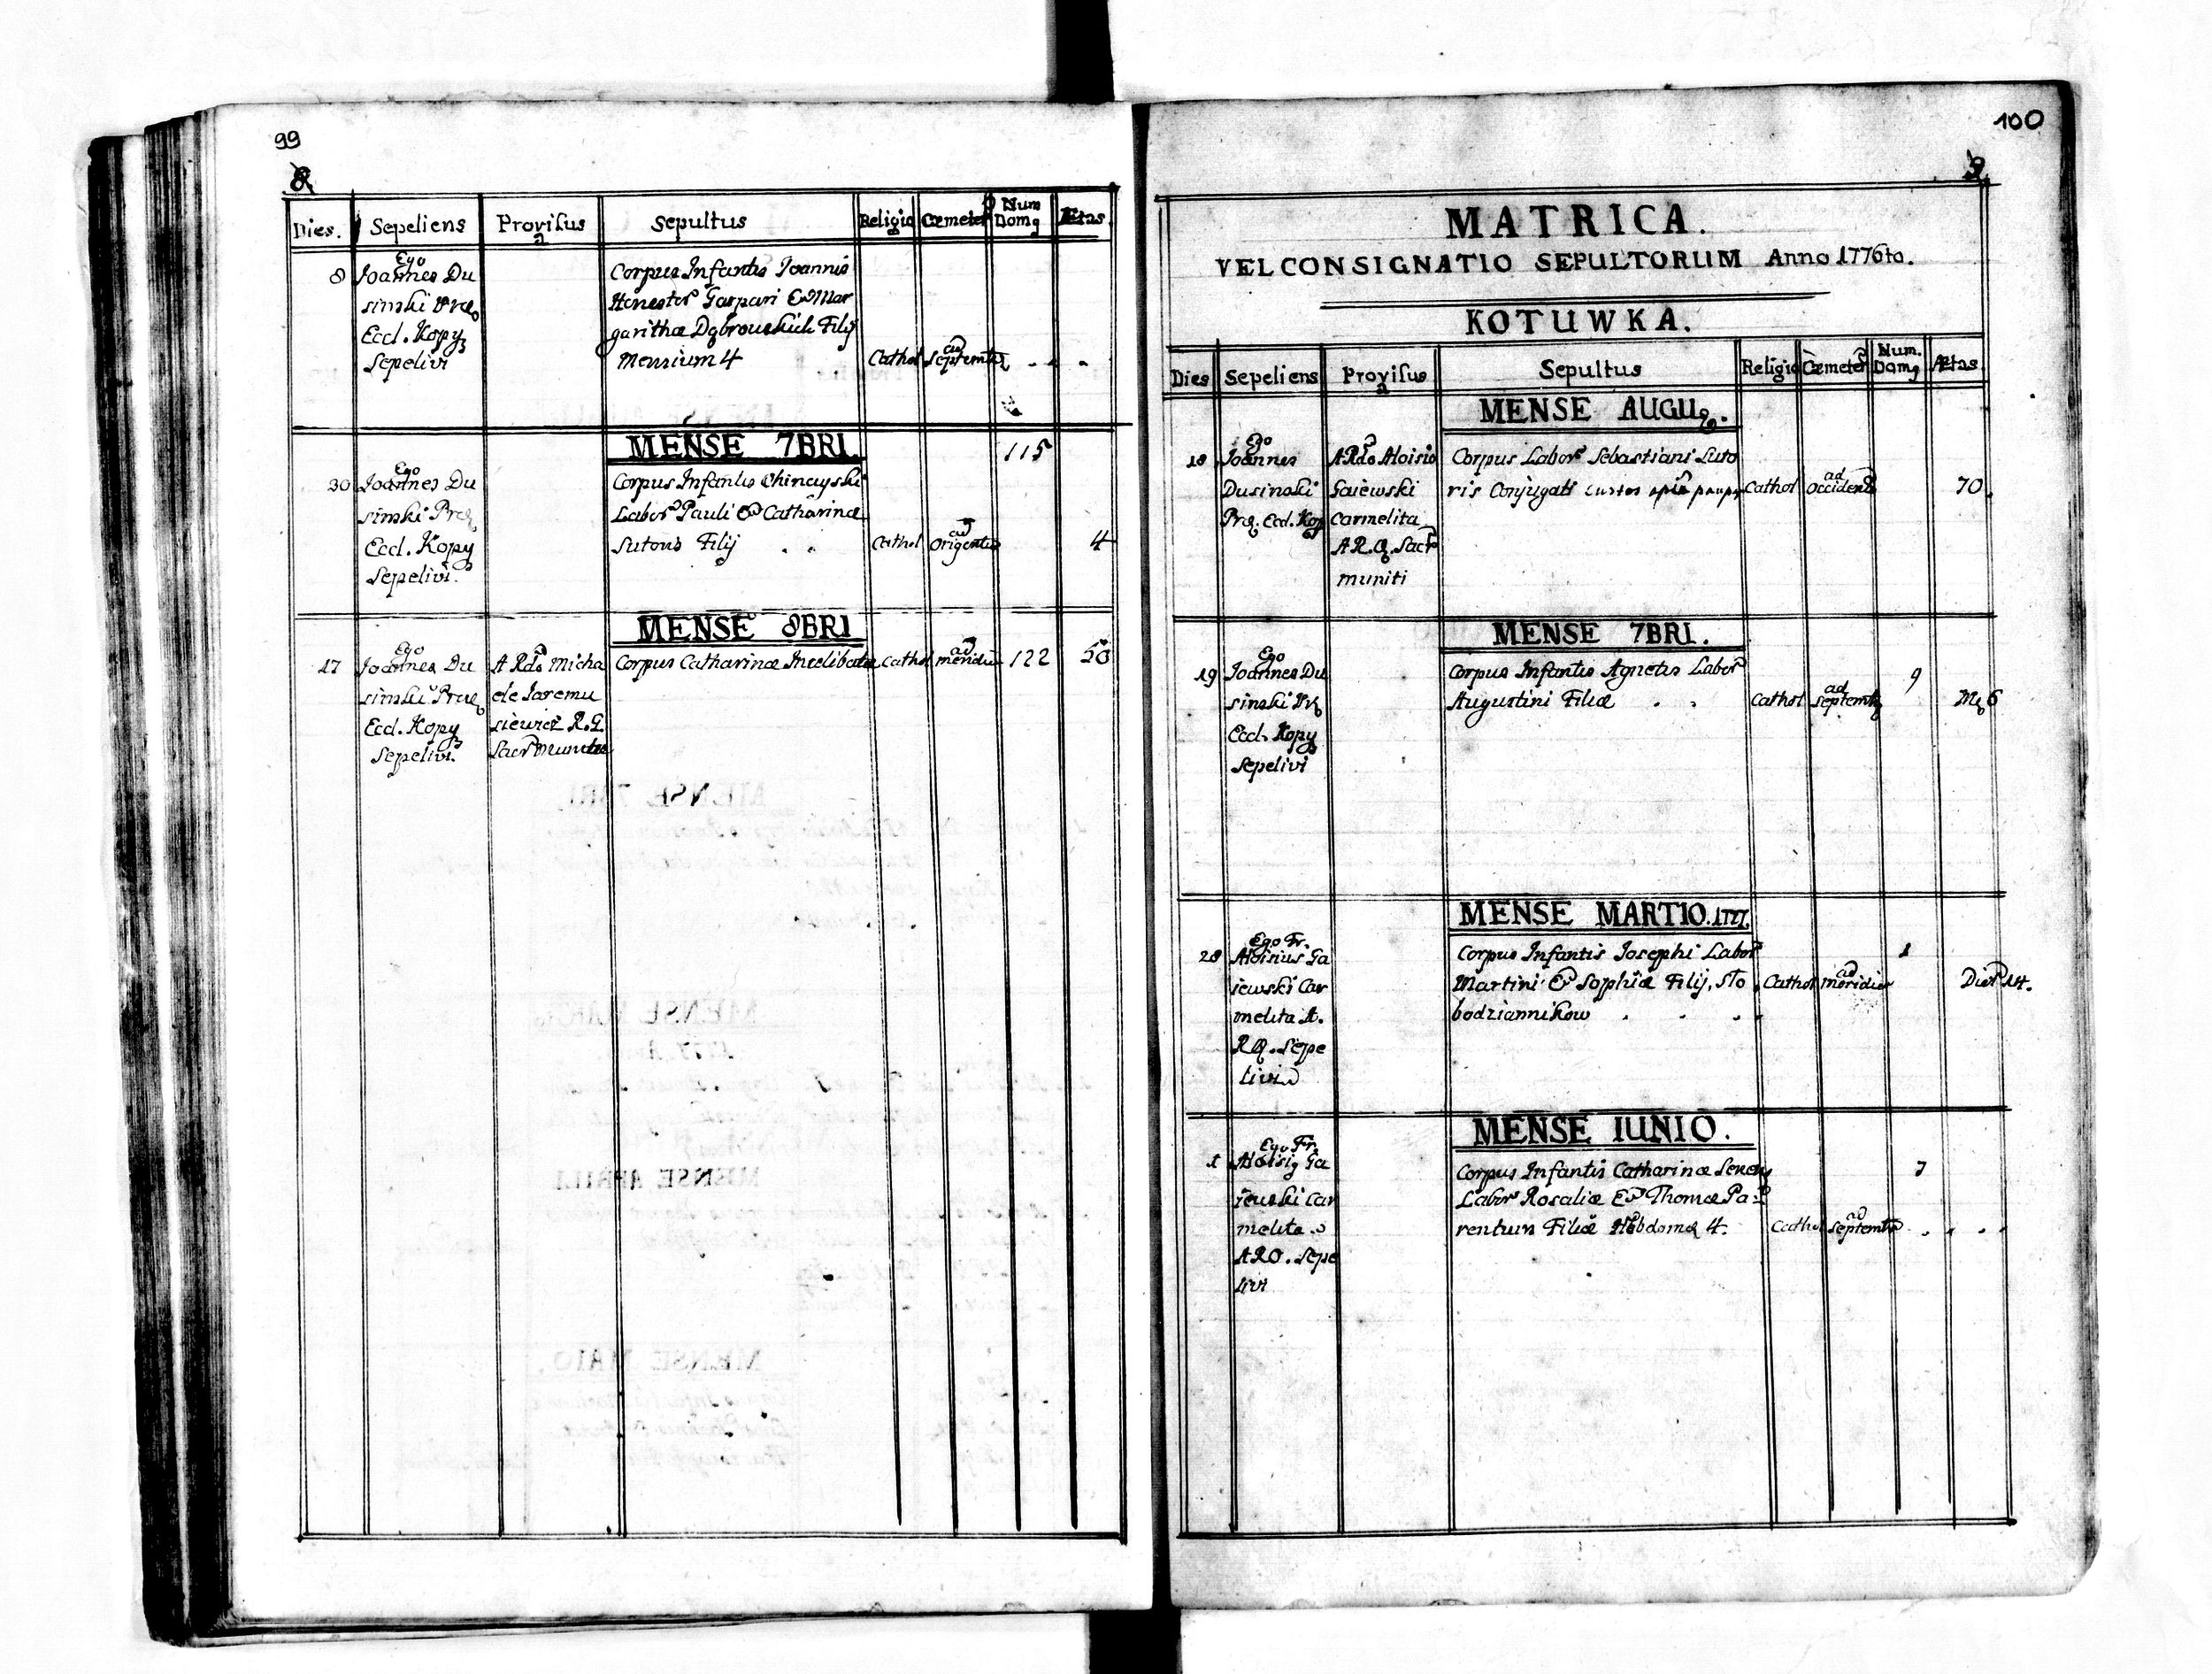 99
8
Dies. Sepeliens Provisus a Sepultus Religio Cœmeter Num Domq Ætas
8 Ego Joannes Du
sinski Præ
Eccl. Kopy
Sepelivi
Corpus Infantis Joannis
Honestor Gaspari & Mar
garithæ Dąbrowskich Filij
Mensium 4 Cathol ad septemtr
MENSE 7BRI. 115
30 Ego Joannes Du
sinski Præ
Eccl. Kopy
Sepelivi.
Corpus Infantis
Labor Pauli & Catharinæ
Sutoris Filij Cathol ad Origentis 4
MENSE 8BRI
17 Ego Joannes Du
sinski Præ
Eccl. Kopy
Sepelivi.
A Rdo Micha
ele Jaremu
siewicz R. L.
Sacr Munitæ
Corpus Catharinæ Cathol ad meridie 122 50
100
9
MATRICA.
VEL CONSIGNATIO SEPULTORUM Anno 1776to.
KOTUWKA.
Dies Sepeliens Provisus a Sepultus Religio Cæmeter Num. Domq Ætas
MENSE AUGUq.
18 Ego Joannes
Dusinski
Præ. Eccl. Kop
A Rdo Aloisio
Gaiewski
Carmelita
A R. Q. Sacr
muniti
Corpus Labor Sebastiani Suto
ris Conjugati Cathol ad Occident 70.
MENSE 7BRI.
19 Ego Joannes Du
sinski
Eccl. Kopy
Sepelivi
Corpus Infantis Agnetis Labor
Augustini Filiæ Cathol ad septemtr 9 M 6
MENSE MARTIO. 1777.
28 Ego Fr.
Aloisius Ga
iewski Car
melita A.
R Q. Sepe
livi
Corpus Infantis Josephi Labor
Martini & Sophiæ Filij, Sło
bodziannikow Cathol ad meridie 1 Dier 14.
MENSE IUNIO.
1 Ego Fr.
Aloisiq Ga
iewski Car
melita
A R O. Sepe
livi
Corpus Infantis Catharinæ
Labor Rosaliæ & Thomæ Pa-
rentum Filiæ Hebdom 4. Cathol ad septemtr 7